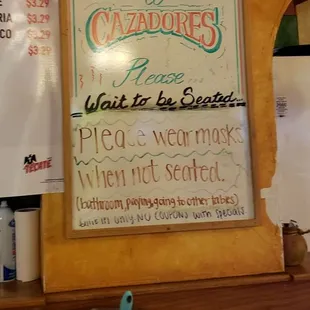 $3.29
$3.29
$3.29
$3.29
CAZADORES
Please...
Wait to be Seated...
Please wear masks
When not seated.
(bathroom, paying, going to other tables)
Dine in only NO COUPONS with specials
TECATE